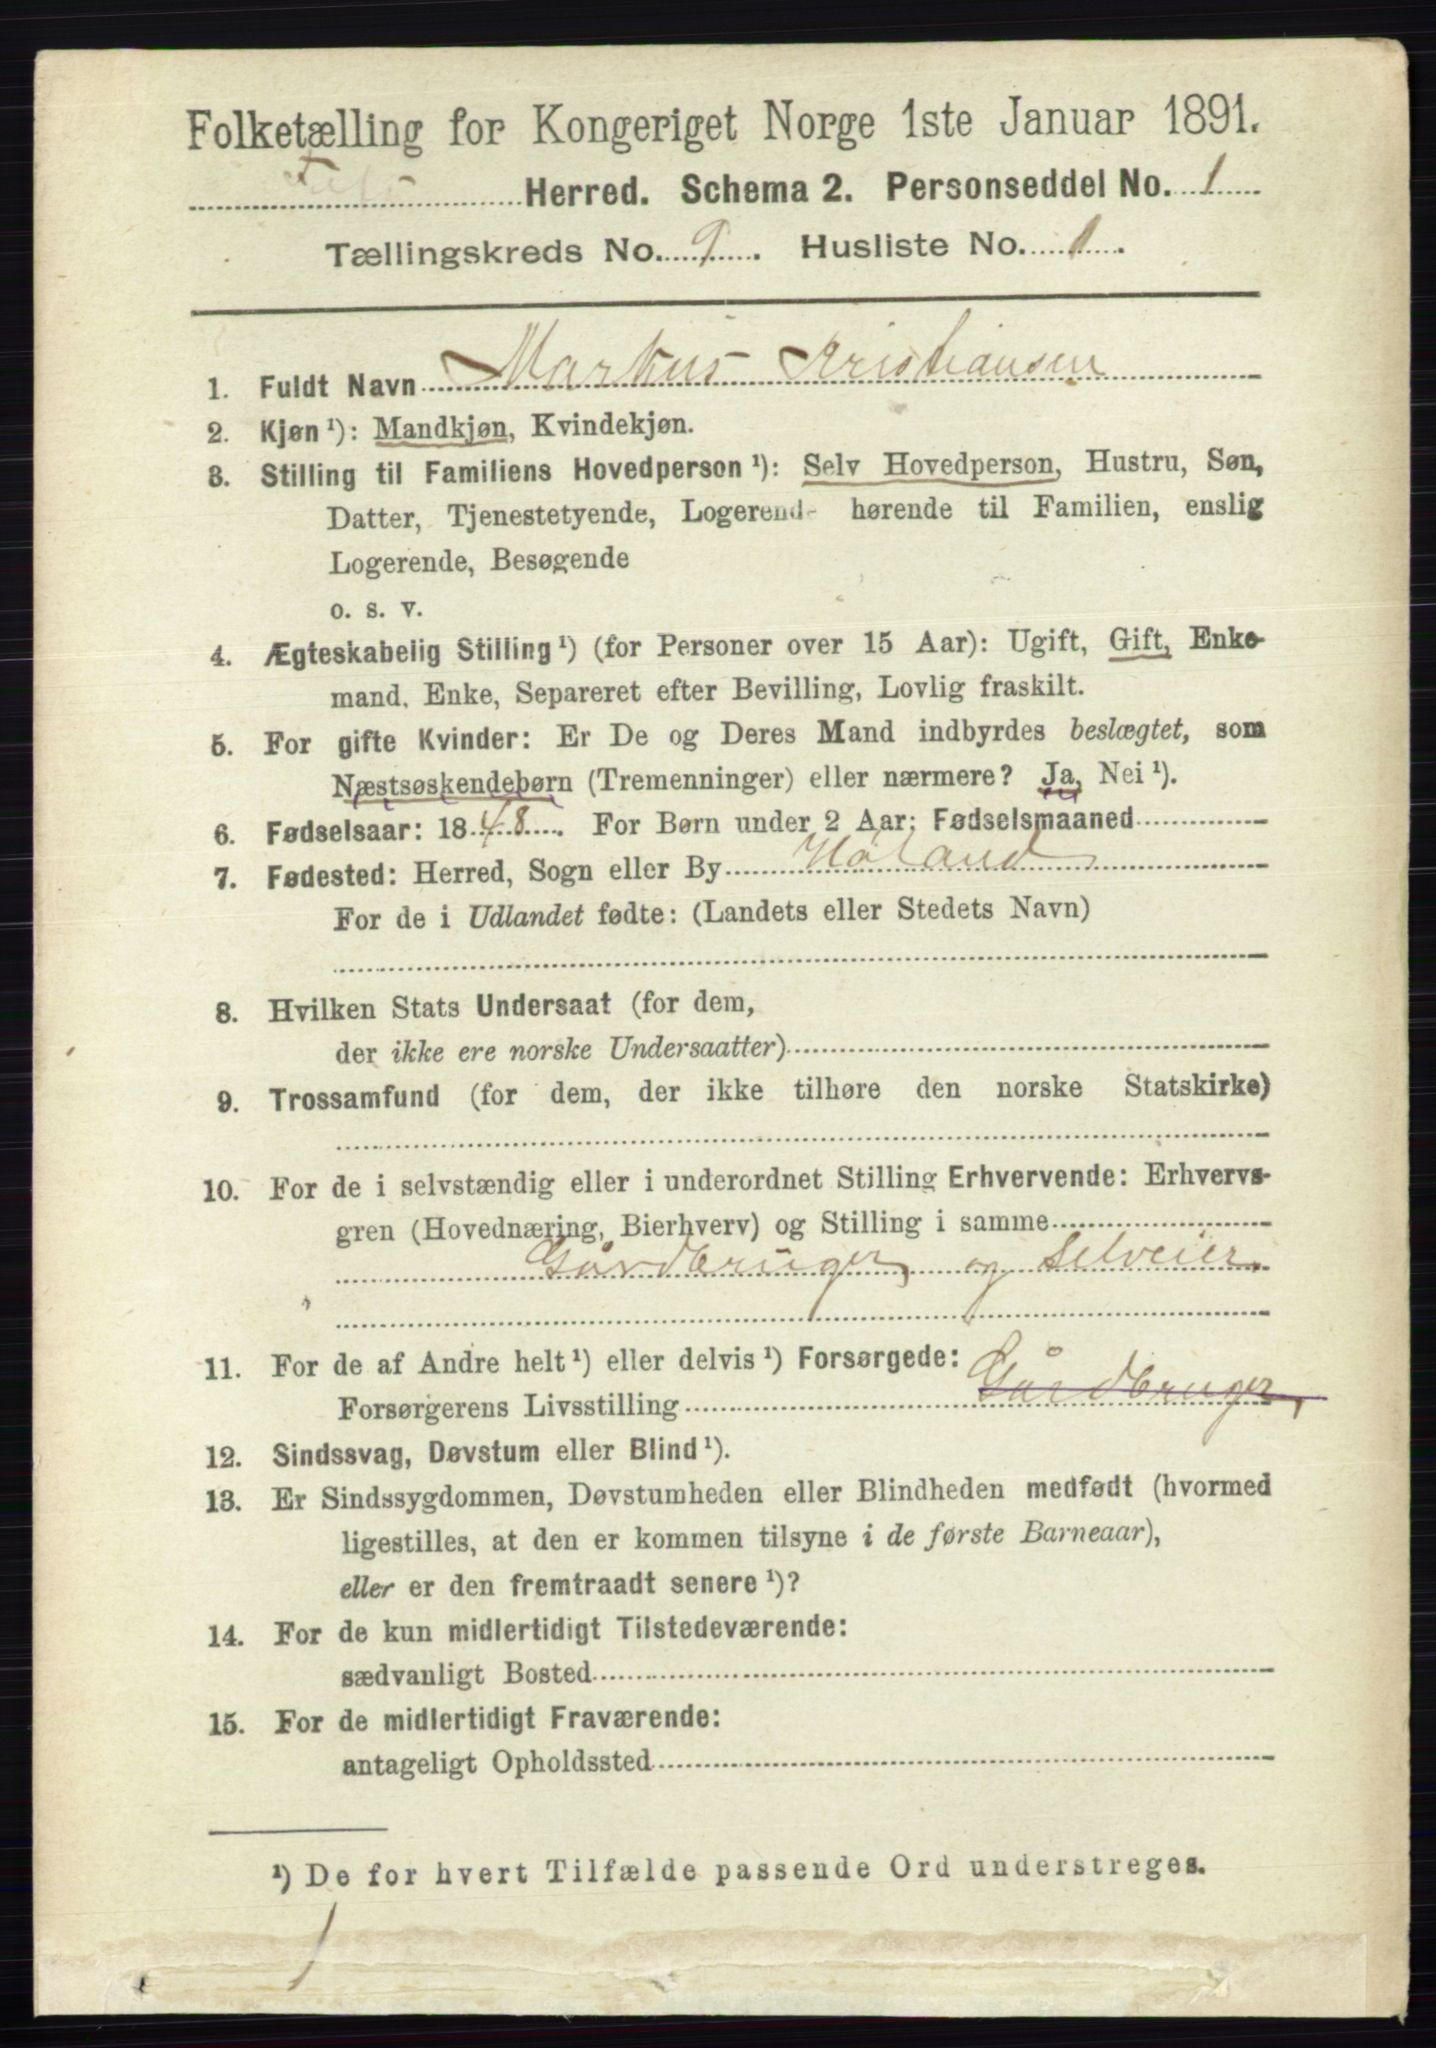 Folketælling for Kongeriget Norge 1ste Januar 1891.
Fet Herred. Schema 2. Personseddel No. 1
Tællingskreds No. 9. Husliste No. 1.
1. Fuldt Navn Markus Kristiansen
2. Kjøn¹): Mandkjøn, Kvindekjøn.
3. Stilling til Familiens Hovedperson¹): Selv Hovedperson, Hustru, Søn,
Datter, Tjenestetyende, Logerende hørende til Familien, enslig
Logerende, Besøgende
o. s. v.
4. Ægteskabelig Stilling¹) (for Personer over 15 Aar): Ugift, Gift, Enke-
mand, Enke, Separeret efter Bevilling, Lovlig fraskilt.
5. For gifte Kvinder: Er De og Deres Mand indbyrdes beslægtet, som
Næstsøskendebørn (Tremenninger) eller nærmere? Ja, Nei¹).
6. Fødselsaar: 1848. For Børn under 2 Aar: Fødselsmaaned
7. Fødested: Herred, Sogn eller By Høland
For de i Udlandet fødte: (Landets eller Stedets Navn)
8. Hvilken Stats Undersaat (for dem,
der ikke ere norske Undersaatter)
9. Trossamfund (for dem, der ikke tilhøre den norske Statskirke)
10. For de i selvstændig eller i underordnet Stilling Erhvervende: Erhvervs-
gren (Hovednæring, Bierhverv) og Stilling i samme
Gårdbruger og selveier.
11. For de af Andre helt¹) eller delvis¹) Forsørgede:
Forsørgerens Livsstilling Gårdbruger,
12. Sindssvag, Døvstum eller Blind¹).
13. Er Sindssygdommen, Døvstumheden eller Blindheden medfødt (hvormed
ligestilles, at den er kommen tilsyne i de første Barneaar),
eller er den fremtraadt senere¹)?
14. For de kun midlertidigt Tilstedeværende:
sædvanligt Bosted
15. For de midlertidigt Fraværende:
antageligt Opholdssted
¹) De for hvert Tilfælde passende Ord understreges.